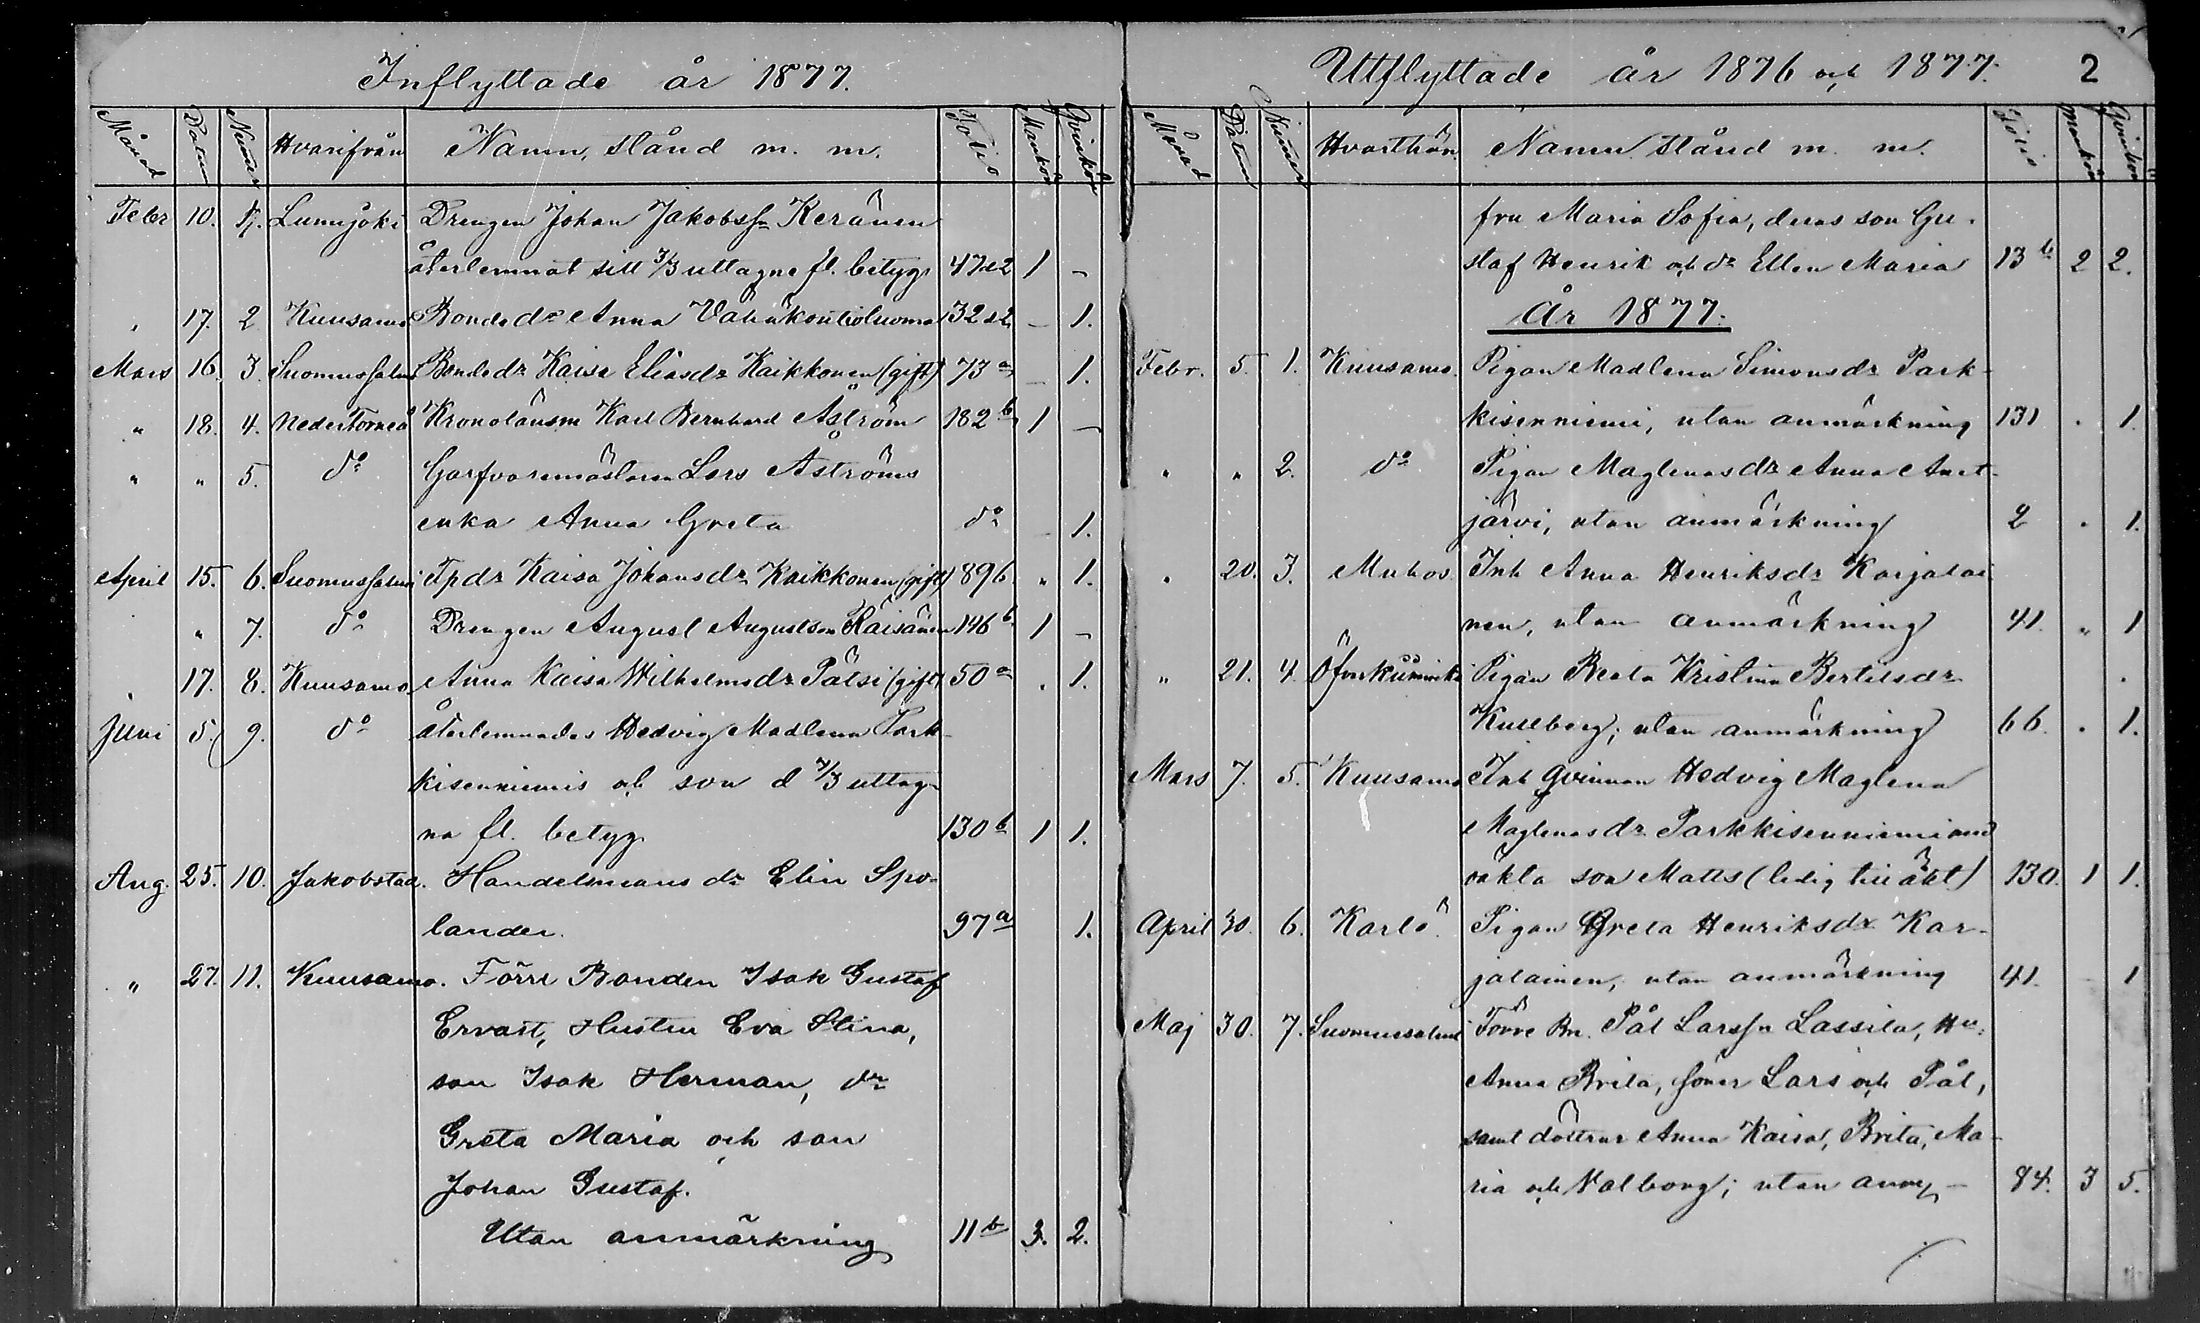 Inflyttade år 1877.
Månad Datum Nummer Hvarifrån Namn, stånd m. m. Folio Mankön Qvinkön
Febr 10. 1. Lumijoki Drengen Johan Jakobsson Keränen
återlemnat sitt 3/3 uttagne fl. betyg 47 1 –
17. 2 Kuusamo Bondedr Anna 32 – 1.
Mars 16. 3. Suomussalmi Bondedr Kaisa Eliasdr Kaikkonen (gift) 73 a – 1.
" 18. 4. Nedertorneå Kronolänsm Karl Bernhard Åström 182 b 1 –
" " 5. do Garfvaremästaren Lars Åströms
enka Anna Greta do – 1.
April 15. 6. Suomussalmi Tpdr Kaisa Johansdr Kaikkonen (gift) 89 b. " 1.
" 7. do Drengen August Augustson Räisänen 146 b 1 –
17. 8. Kuusamo Anna Kaisa Wilhelmsdr Pätsi (gift) 50 a . 1.
Juni 5. 9. do återlemnades Hedvig Madlena Park-
kisenniemis och son d 7/3 uttag-
na fl. betyg 130 b 1 1.
Aug. 25. 10. Jakobstad. Handelsmans dr Elin Spo-
lander. 97 a 1.
" 27. 11. Kuusamo. Förre Bonden Isak Gustaf
Ervast, Hustru Eva Stina,
son Isak Herman, dr
Greta Maria och son
Johan Gustaf.
Utan anmärkning 11 b 3. 2.
Utflyttade år 1876 och 1877. 2
Månad Datum Nummer Hvarthän Namn, stånd m. m. Folio Mankön Qvinkön
fru Maria Sofia, deras son Gu-
staf Henrik och dr Ellen Maria 13 b 2 2.
År 1877.
Febr. 5. 1. Kuusamo. Pigan Madlena Simonsdr Park-
kisenniemi, utan anmärkning 131 . 1.
" " 2. do Pigan Maglenasdr Anna
järvi, utan anmärkning 2 . 1.
" 20. 3. Muhos Inh Anna Henriksdr Karjalai
nen, utan anmärkning 41. " 1
" 21. 4 Öfverkiiminki Pigan Beata Kristina Bertilsdr
Kullberg; utan anmärkning 66. . 1.
Mars 7. 5. Kuusamo Inh qvinnan Hedvig Maglena
Maglenasdr Parkkisenniemi med
oäkta son Matts (ledig till äkt) 130. 1 1.
April 30. 6. Karlö. Pigan Greta Henriksdr Kar-
jalainen, utan anmärkning 41. – 1
Maj 30. 7. Suomussalmi Förre Bn. Pål Larsson Lassila, Hu:
Anna Brita, söner Lars och Pål,
samt döttrar Anna Kaisa, Brita, Ma-
ria och Valborg; utan anm – 84. 3 5.